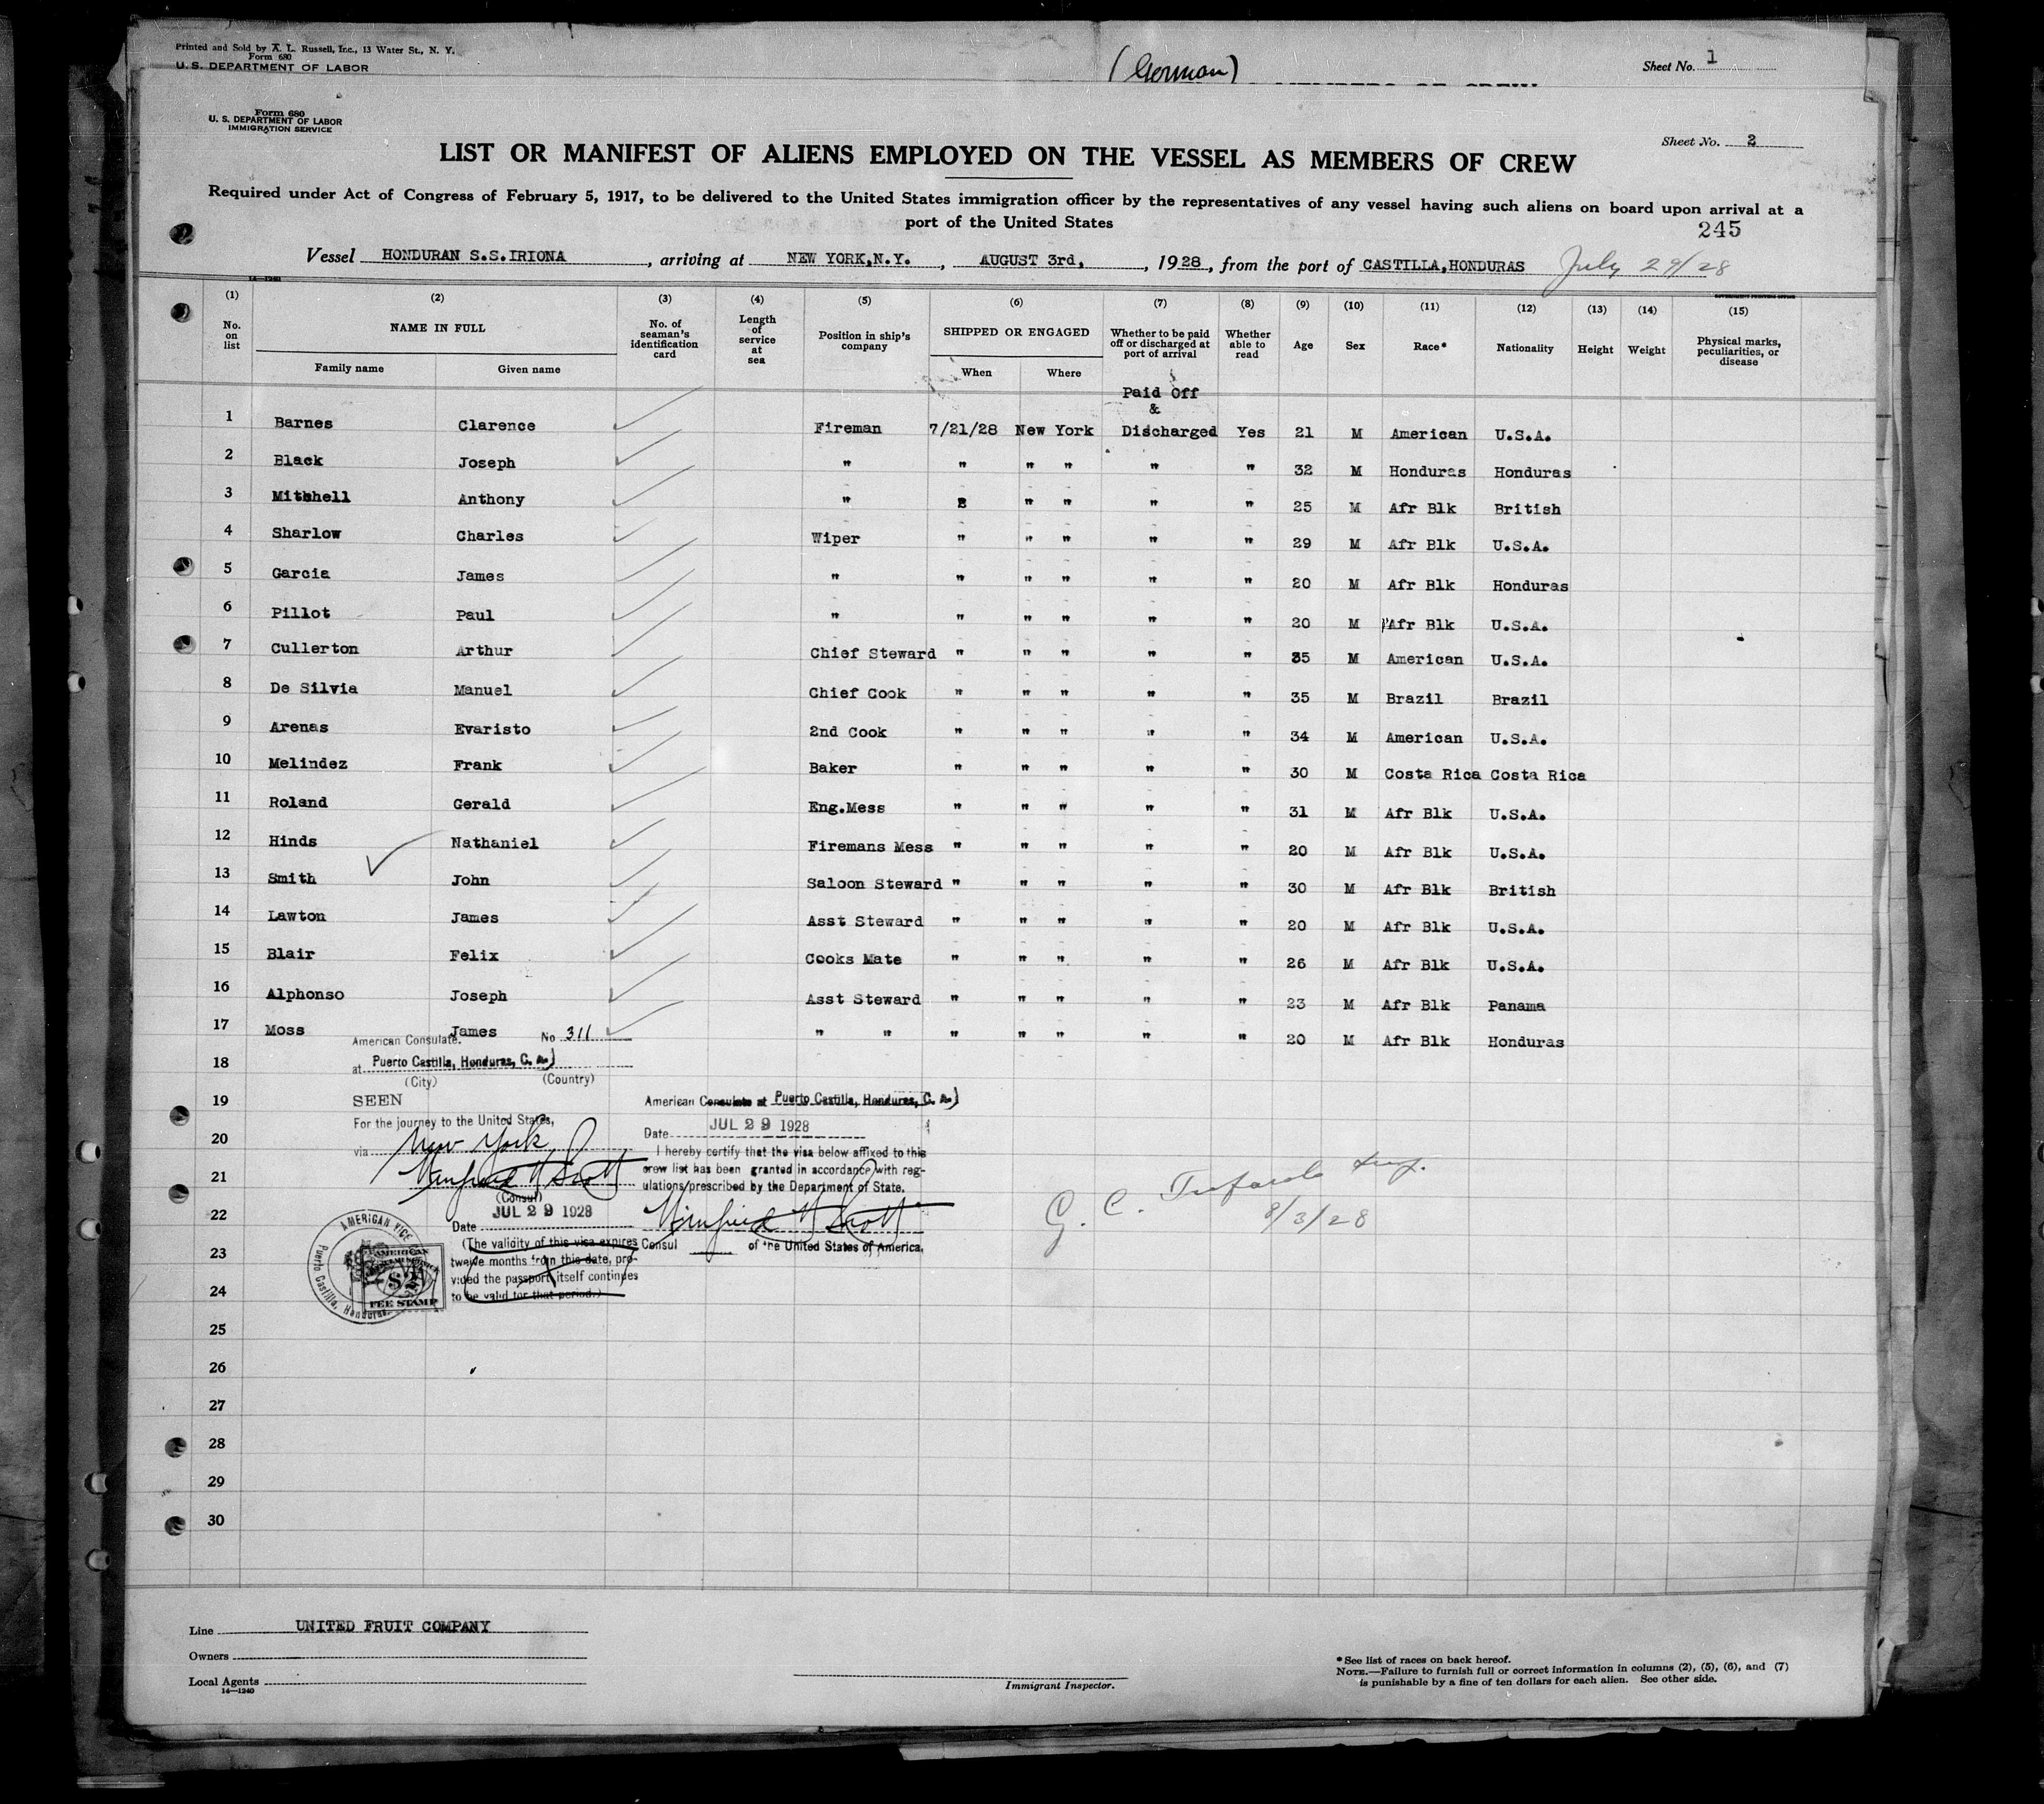 Printed and Sold by A. L. Russell, Inc., 13 Water St., N. Y.
Form 680
U. S. DEPARTMENT OF LABOR
(German)
Sheet No. 1
Form 680
U. S. DEPARTMENT OF LABOR
IMMIGRATION SERVICE
Sheet No. 2
LIST OR MANIFEST OF ALIENS EMPLOYED ON THE VESSEL AS MEMBERS OF CREW
Required under Act of Congress of February 5, 1917, to be delivered to the United States immigration officer by the representatives of any vessel having such aliens on board upon arrival at a
port of the United States
245
Vessel HONDURAN S.S.IRIONA, arriving at NEW YORK,N.Y., AUGUST 3rd, , 1928, from the port of CASTILLA,HONDURAS July 29/28
14—1240
(1) (2) (3) (4) (5) (6) (7) (8) (9) (10) (11) (12) (13) (14) (15)
No. on list NAME IN FULL Family name Given name No. of seaman's identification card Length of service at sea Position in ship's company SHIPPED OR ENGAGED When Where Whether to be paid off or discharged at port of arrival Whether able to read Age Sex Race* Nationality Height Weight Physical marks, peculiarities, or disease
Paid Off
&
1 Barnes Clarence Fireman 7/21/28 New York Discharged Yes 21 M American U.S.A.
2 Black Joseph " " " " " " 32 M Honduras Honduras
3 Mitchell Anthony " " " " " " 25 M Afr Blk British
4 Sharlow Charles Wiper " " " " " 29 M Afr Blk U.S.A.
5 Garcia James " " " " " " 20 M Afr Blk Honduras
6 Pillot Paul " " " " " " 20 M Afr Blk U.S.A.
7 Cullerton Arthur Chief Steward " " " " " 35 M American U.S.A.
8 De Silvia Manuel Chief Cook " " " " " 35 M Brazil Brazil
9 Arenas Evaristo 2nd Cook " " " " " 34 M American U.S.A.
10 Melindez Frank Baker " " " " " 30 M Costa Rica Costa Rica
11 Roland Gerald Eng.Mess " " " " " 31 M Afr Blk U.S.A.
12 Hinds Nathaniel Firemans Mess " " " " " 20 M Afr Blk U.S.A.
13 Smith John Saloon Steward " " " " " 30 M Afr Blk British
14 Lawton James Asst Steward " " " " " 20 M Afr Blk U.S.A.
15 Blair Felix Cooks Mate " " " " " 26 M Afr Blk U.S.A.
16 Alphonso Joseph Asst Steward " " " " " 23 M Afr Blk Panama
17 Moss James " " " " " " " 20 M Afr Blk Honduras
18
19
20
21
22
23
24
25
26
27
28
29
30
American Consulate. No 311
at Puerto Castilla, Honduras, C. A.)
(City) (Country)
SEEN
For the journey to the United States,
via New York
Winfield H Scott
(Consul)
JUL 29 1928
Date
(The validity of this visa expires
twelve months from this date, pro-
vided the passport itself continues
to be valid for that period.)
AMERICAN VICE
Puerto Castilla, Honduras
AMERICAN
$2
FEE STAMP
American Consulate at Puerto Castilla, Honduras, C. A.)
Date JUL 29 1928
I hereby certify that the visa below affixed to this
crew list has been granted in accordance with reg-
ulations prescribed by the Department of State.
Winfield H Scott
Consul of the United States of America.
G. C.
8/3/28
Line UNITED FRUIT COMPANY
Owners
Local Agents
14—1240
Immigrant Inspector.
* See list of races on back hereof.
NOTE.—Failure to furnish full or correct information in columns (2), (5), (6), and (7)
is punishable by a fine of ten dollars for each alien. See other side.